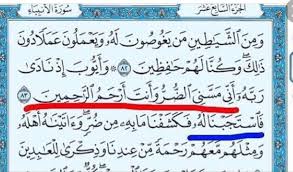 الجزء السابع عشر سورة الأنبياء
وَمِنَ ٱلشَّيَٰطِينِ مَن يَغُوصُونَ لَهُۥ وَيَعْمَلُونَ عَمَلًا دُونَ
ذَٰلِكَ ۖ وَكُنَّا لَهُمْ حَٰفِظِينَ ٨٢ ۞ وَأَيُّوبَ إِذْ نَادَىٰ
رَبَّهُۥٓ أَنِّى مَسَّنِىَ ٱلضُّرُّ وَأَنتَ أَرْحَمُ ٱلرَّٰحِمِينَ ٨٣
فَٱسْتَجَبْنَا لَهُۥ فَكَشَفْنَا مَا بِهِۦ مِن ضُرٍّ ۖ وَءَاتَيْنَٰهُ أَهْلَهُۥ
وَمِثْلَهُم مَّعَهُمْ رَحْمَةً مِّنْ عِندِنَا وَذِكْرَىٰ لِلْعَٰبِدِينَ